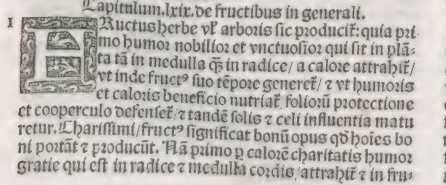 Capitulum.lxix.de fructibus in generali.
I FRuctus herbe vł arboris sic producit᷑: quia pri
mo humor nobilior et vnctuosior qui sit in plā-
ta tā in medulla q̄ȝ in radice/ a calore attrahit᷑/
vt inde fruct⁹ suo tēpore generet᷑/ ⁊ vt humoris
et caloris beneficio nutriat᷑ folioruʒ protectione
et cooperculo defenset᷑/ ⁊ tandē solis ⁊ celi influentia matu
retur. Charissimi/ fruct⁹ significat bonū opus qđ hoīes bo
ni portāt ⁊ producūt. Nā primo ꝑ calorē charitatis humor
gratie qui est in radice ⁊ medulla cordis/ attrahit᷑ ⁊ in frus